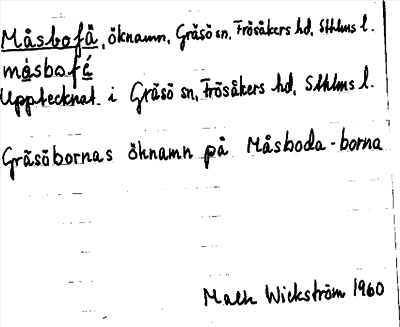 Måsbofä, öknamn, Gräsö sn, Frösåkers hd, Sthlms l.
måsbofé
Upptecknat i Gräsö sn, Frösåkers hd, Sthlms l.
Gräsöbornas öknamn på Måsboda-borna
Wickström 1960